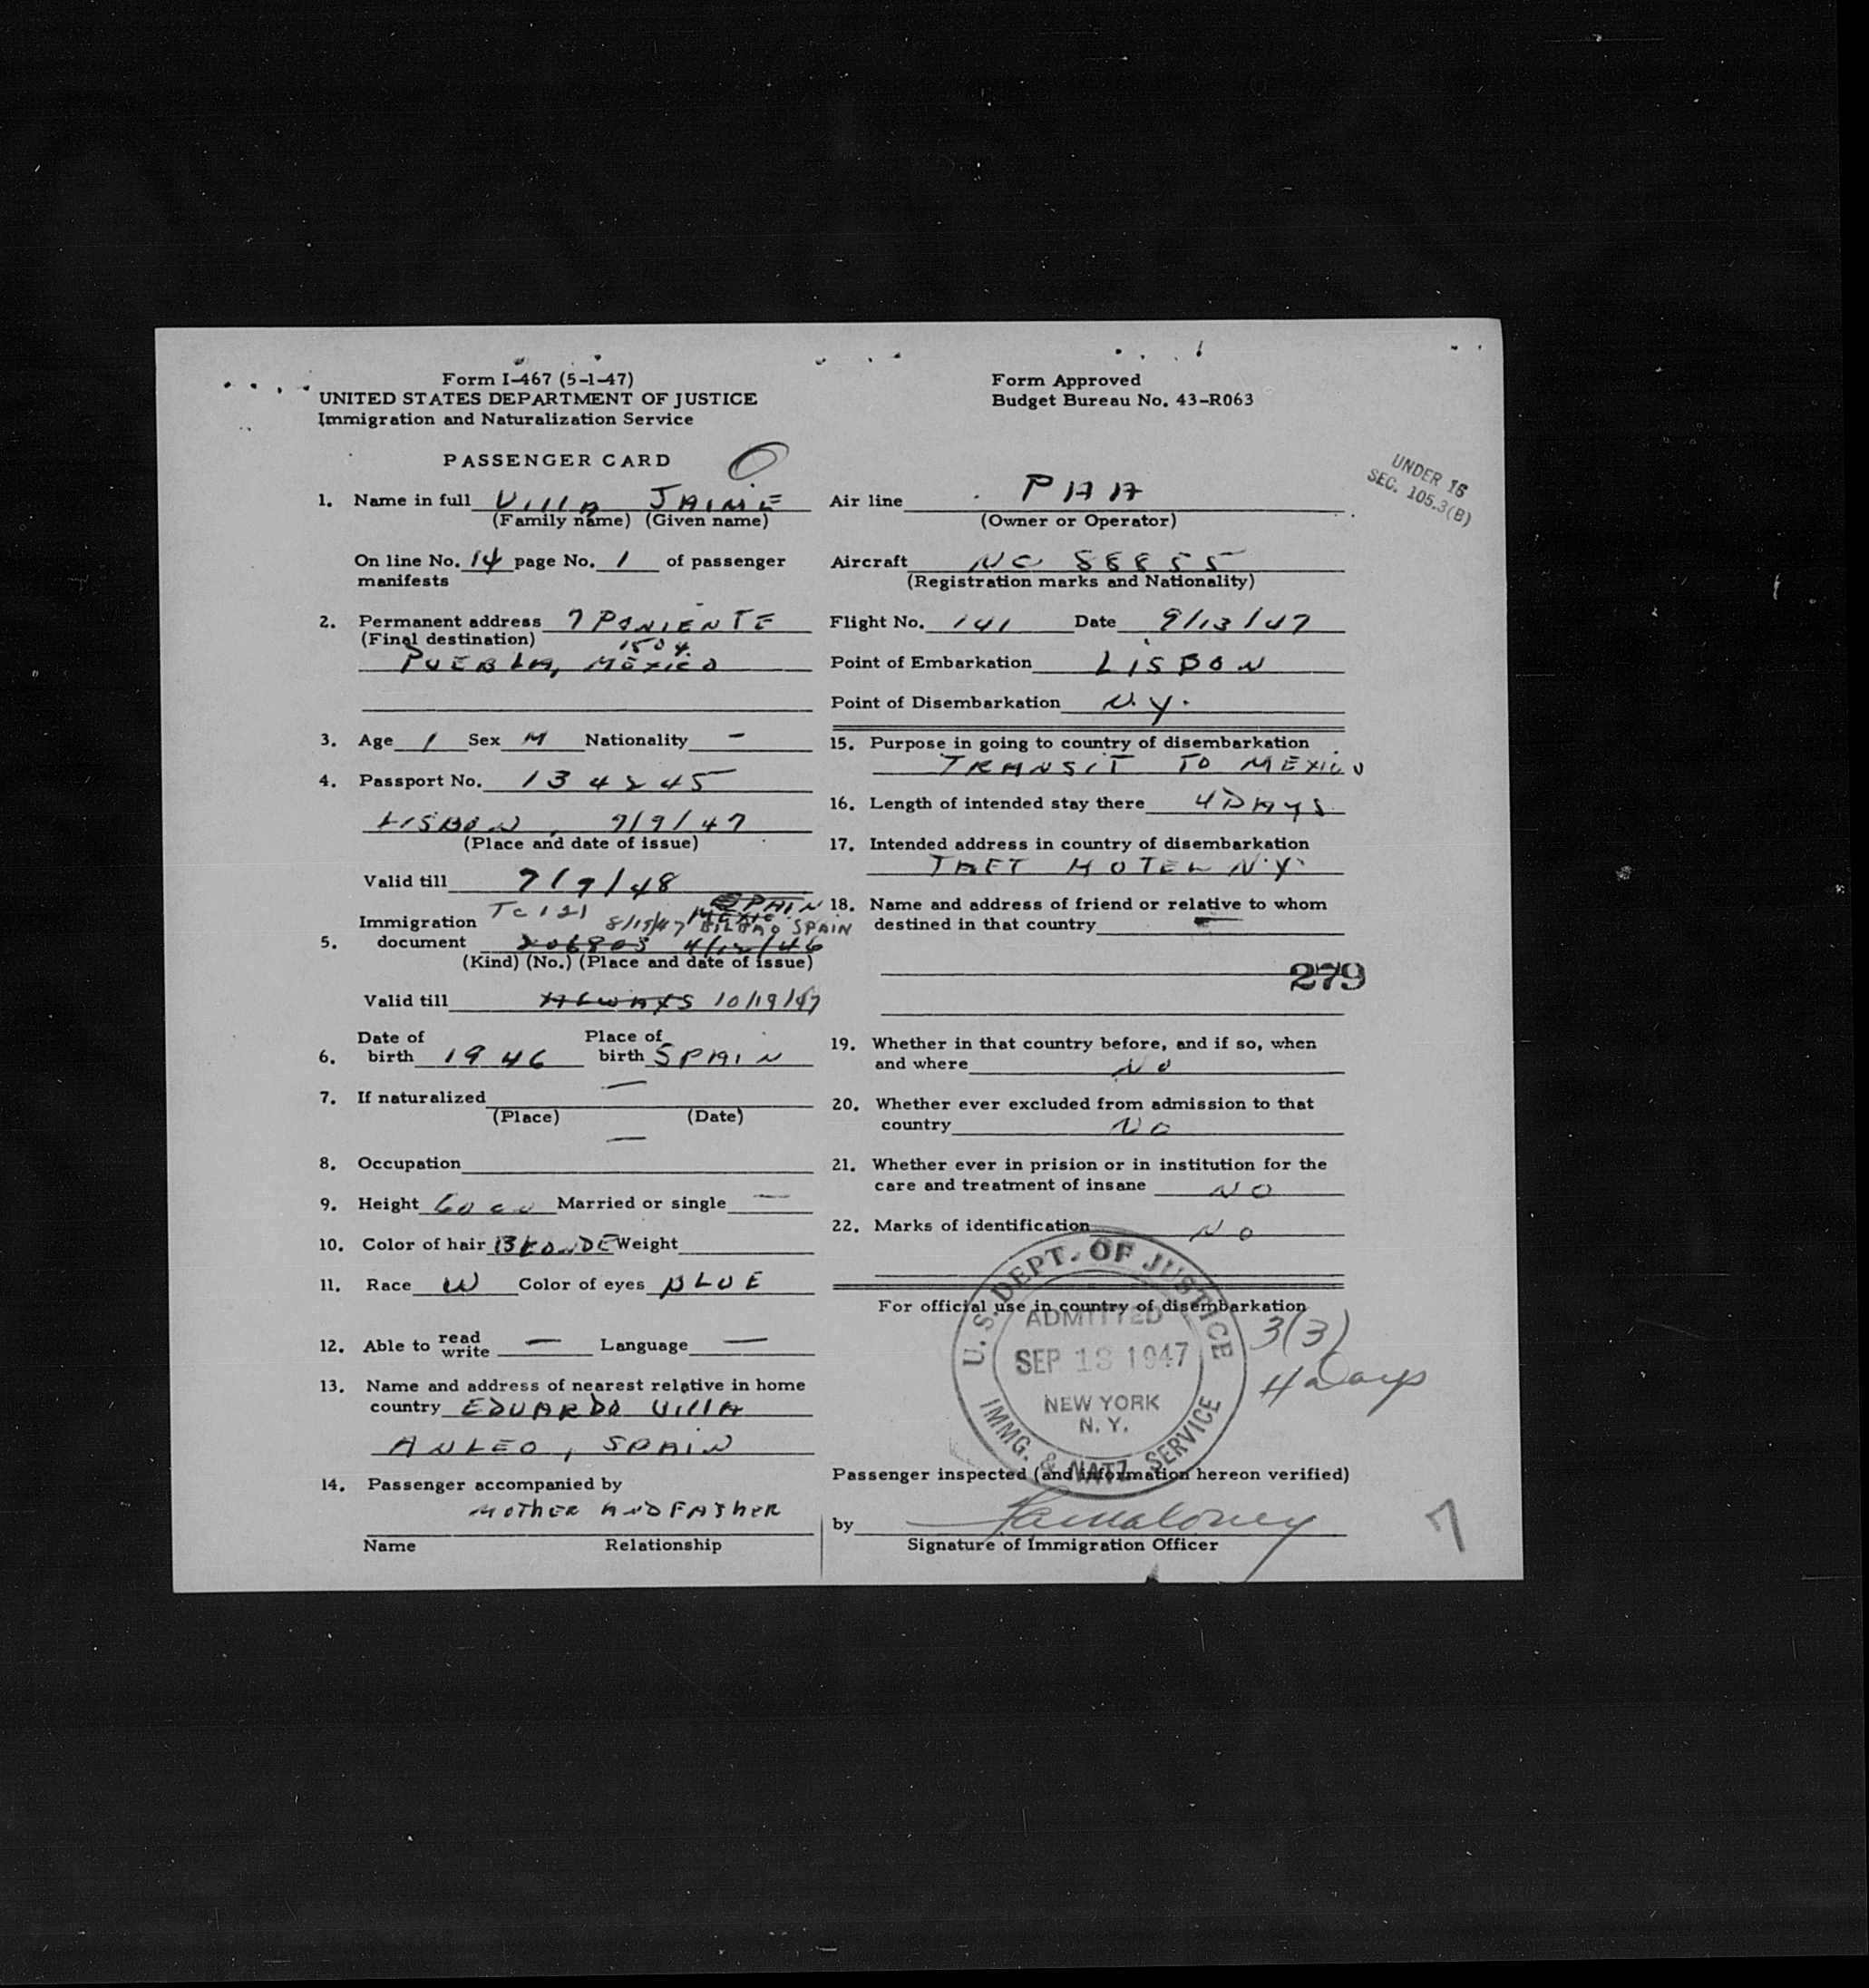 Form I-467 (5-1-47)
UNITED STATES DEPARTMENT OF JUSTICE
Immigration and Naturalization Service
Form Approved
Budget Bureau No. 43-R063
UNDER 16
SEC. 105.3(B)
PASSENGER CARD
1. Name in full VILLA JAIME
(Family name) (Given name)
On line No. 14 page No. 1 of passenger
manifests
2. Permanent address 7 PONIENTE
(Final destination) 1504.
PUEBLA, MEXICO
3. Age 1 Sex M Nationality -
4. Passport No. 134245
LISBON, 9/9/47
(Place and date of issue)
Valid till 9/9/48
SPAIN
Immigration TC 121 8/19/47 BILBAO SPAIN
5. document 206803 4/12/46
(Kind) (No.) (Place and date of issue)
Valid till ALWAYS 10/19/47
Date of Place of
6. birth 1946 birth SPAIN
7. If naturalized —
(Place) (Date)
8. Occupation —
9. Height 60 Married or single —
10. Color of hair BLONDE Weight
11. Race W Color of eyes BLUE
12. Able to read write — Language —
13. Name and address of nearest relative in home
country EDUARDO VILLA
ANLEO, SPAIN
14. Passenger accompanied by
MOTHER AND FATHER
Name Relationship
Air line PAA
(Owner or Operator)
Aircraft NC 88855
(Registration marks and Nationality)
Flight No. 141 Date 9/13/47
Point of Embarkation LISBON
Point of Disembarkation N.Y.
15. Purpose in going to country of disembarkation
TRANSIT TO MEXICO
16. Length of intended stay there 4 DAYS
17. Intended address in country of disembarkation
TAFT HOTEL N.Y.
18. Name and address of friend or relative to whom
destined in that country -
279
19. Whether in that country before, and if so, when
and where NO
20. Whether ever excluded from admission to that
country NO
21. Whether ever in prision or in institution for the
care and treatment of insane NO
22. Marks of identification NO
For official use in country of disembarkation
U.S. DEPT. OF JUSTICE
ADMITTED
SEP 13 1947
NEW YORK
N. Y.
IMMG. & NATZ. SERVICE
3(3)
4 Days
Passenger inspected (and information hereon verified)
by
Signature of Immigration Officer
7